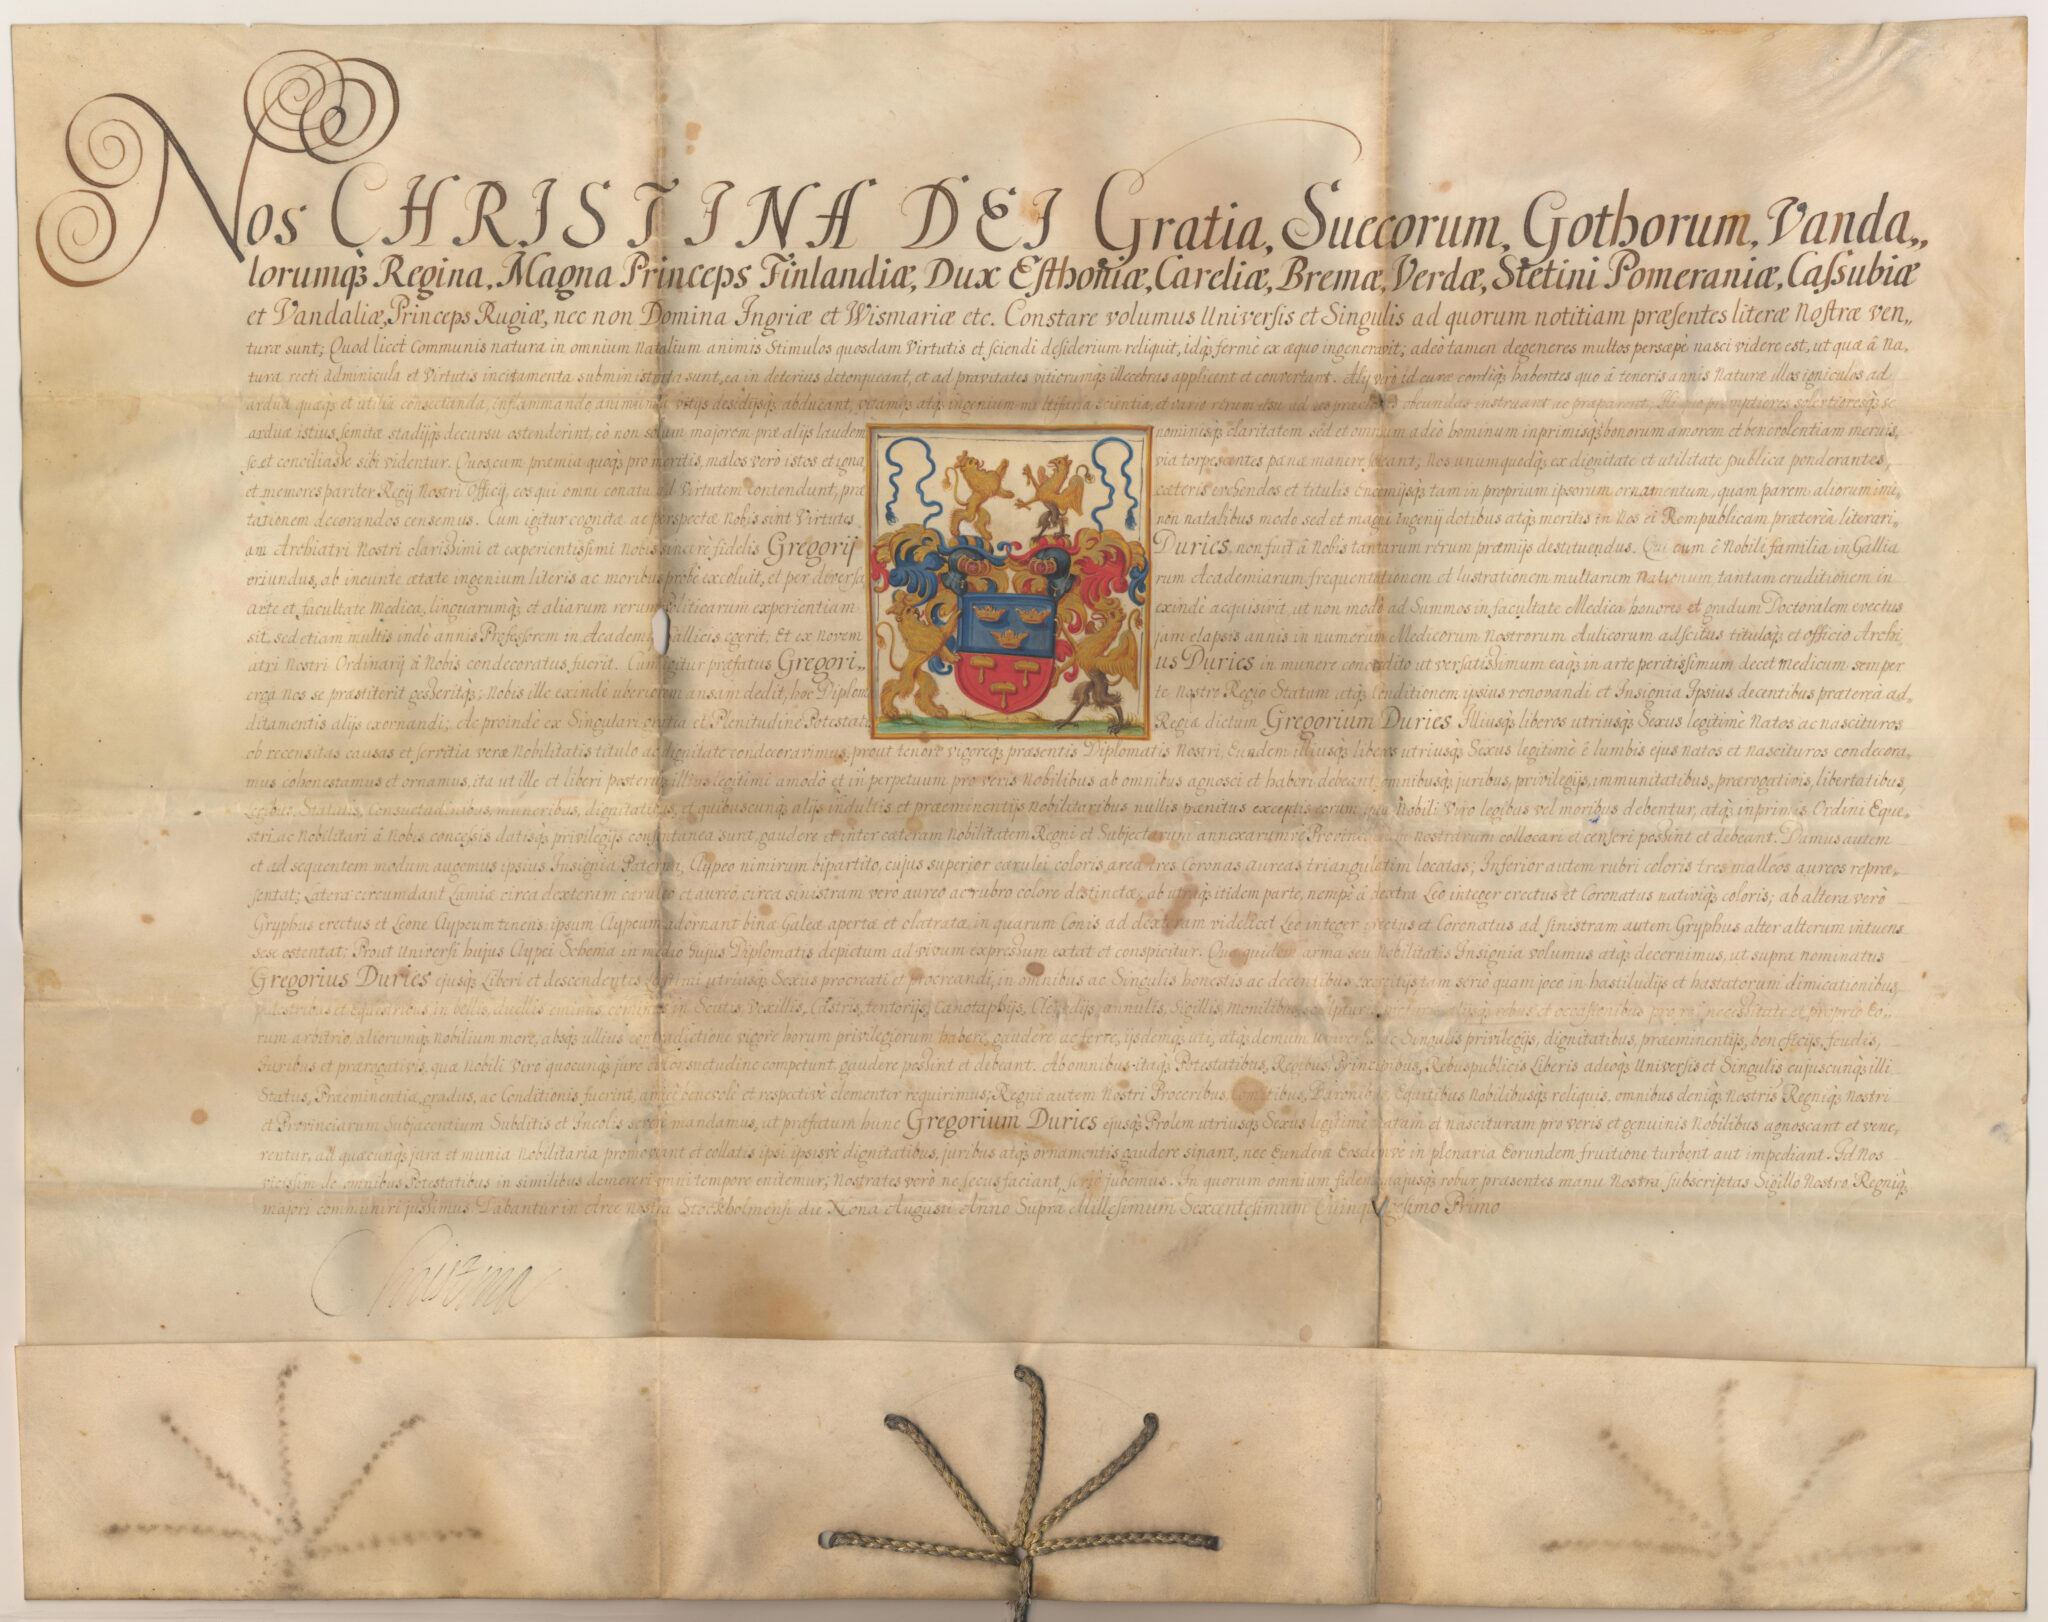 Nos CHRISTINA DEI Gratia, Suecorum, Gothorum, Vanda„
lorumqꝫ Regina, Magna Princeps Finlandiæ, Dux Esthoniæ, Careliæ, Bremæ, Verdæ, Stetini Pomeraniæ, Cassubiæ
et Vandaliæ, Princeps Rugiæ, nec non Domina Ingriæ et Wismariæ etc. Constare volumus Universis et Singulis ad quorum notitiam præsentes literæ Nostræ ven„
turæ sunt; Quod licet Communis natura in omnium Natalium animis Stimulos quosdam Virtutis et sciendi desiderium reliquit, idqꝫ fermè ex æquo ingeneravit; adeò tamen degeneres multos persæpè nasci videre est, ut quæ â Na„
tura recti adminicula et Virtutis incitamenta subministrata sunt, ea in deterius detorqueant, et ad pravitates vitiorumqꝫ illecebras applicent et convertant. Alij verò id curæ cordiqꝫ habentes quo â teneris annis Naturæ illos igniculos ad
ardua quæqꝫ et utilia consectanda, inflammando animum desidijsqꝫ abducant, vitamqꝫ atqꝫ ingenium multifaria scientia, et vario rerum usu ad obeundas instruant ac præparent,
arduæ istius semitæ stadijqꝫ decursu ostenderint, eò non solum majorem præ alijs laudem nominisqꝫ claritatem sed et omnium adeò hominum inprimisqꝫ bonorum amorem et benevolentiam meruis„
se et conciliasse sibi videntur. Quos cum præmia quoqꝫ pro meritis, malos verò istos et igna via torpescentes pænæ manere soleant; Nos unumquodqꝫ ex dignitate et utilitate publica ponderantes,
et memores pariter Regij Nostri Officij, eos qui omni conatu ad Virtutem contendunt, præ cæteris evehendos et titulis Encomijsqꝫ tam in proprium ipsorum ornamentum, quam parem aliorum imi„
tationem decorandos censemus. Cum igitur cognitæ ac perspectæ Nobis sint Virtutes non natalibus modo sed et magni Ingenij dotibus atqꝫ meritis in Nos et Rempublicam præterèa literari„
am Archiatri Nostri clarissimi et experientissimi Nobis sincerè fidelis Gregorij Duries, non fuit â Nobis tantarum rerum præmijs destituendus. Qui cum è Nobili familia in Gallia
oriundus, ab ineunte ætate ingenium literis ac moribus probè excoluit, et per diversa rum Academiarum frequentationem et lustrationem multarum Nationum, tantam eruditionem in
arte et facultate Medica, linguarumqꝫ et aliarum rerum politicarum experientiam exindè acquisivit, ut non modò ad Summos in facultate Medica honores et gradum Doctoralem evectus
sit, sed etiam multis indè annis Professorem in Academijs Gallicis egerit; Et ex Novem jam elapsis annis in numerum Medicorum Nostrorum Aulicorum adscitus tituloqꝫ et officio Archi„
atri Nostri Ordinarij â Nobis condecoratus fuerit. Cum igitur præfatus Gregori„ us Duries in munere concredito ut versatissimum eaqꝫ in arte peritissimum decet Medicum semper
ergà nos se præstiterit gesseritqꝫ; Nobis ille exindè uberiorem ansam dedit, hoc Diplom te Nostro Regio Statum atqꝫ Conditionem ipsius renovandi et Insignia Ipsius decentibus præterèà ad„
ditamentis alijs exornandi; Ac proindè ex Singulari gratia et Plenitudine Potestatis Regiæ dictum Gregorium Duries Illiusqꝫ liberos utriusqꝫ Sexus legitimè Natos ac nascituros
ob recensitas causas et merita veræ Nobilitatis titulo ac dignitate condecoravimus, prout tenore vigoreqꝫ præsentis Diplomatis Nostri, Eundem illiusqꝫ liberos utriusqꝫ Sexus legitimè è lumbis ejus natos et nascituros condecora„
mus cohonestamus et ornamus, ita ut ille et liberi posterique illius legitimi amodò et in perpetuum pro veris Nobilibus ab omnibus agnosci et haberi debeant, omnibusqꝫ juribus, privilegijs, immunitatibus, prærogativis, libertatibus,
Legibus, Statutis, Consuetudinibus, muneribus, dignitatibus, et quibuscunqꝫ alijs indultis et præeminentijs Nobilitaribus nullis pænitus exceptis eorum, quæ Nobili Viro legibus vel moribus debentur, atqꝫ inprimis Ordini Eque„
stri ac Nobilitari â Nobis concessis datisqꝫ privilegijs consentanea sunt, gaudere et inter cæteram Nobilitatem Regni et Subjectarum annexarumve Provinciarum nostrarum collocari et censeri possint et debeant. Damus autem
et ad sequentem modum augemus ipsius Insignia Paterna, Clypeo nimirum bipartito, cujus superior cærulei coloris area tres Coronas aureas triangulatim locatas; Inferior autem rubri coloris tres malleos aureos repræ„
sentat; Latera circumdant Laciniæ circa dexteram cæruleo et aureo, circa sinistram vero aureo ac rubro colore distinctæ; ab utraqꝫ itidem parte, nempè â dextra Leo integer erectus et Coronatus nativiqꝫ coloris; ab altera verò
Gryphus erectus et Leone Clypeum tenens. ipsum Clypeum adornant binæ Galeæ apertæ et clatratæ, in quarum Conis ad dexteram videlicet Leo integer erectus et Coronatus ad sinistram autem Gryphus alter alterum intuens
sese ostentat; Prout Universi hujus Clypei Schema in medio hujus Diplomatis depictum ad vivum expressum extat et conspicitur. Quæ quidem arma seu Nobilitatis Insignia volumus atqꝫ decernimus, ut supra nominatus
Gregorius Duries ejusqꝫ Liberi et descendentes Legitimi utriusqꝫ Sexus procreati et procreandi, in omnibus ac Singulis honestis ac decentibus exercitijs, tam seriò quam joco in hastiludijs et hastatorum dimicationibus,
pedestribus et Equestribus, in bellis, duellis eminus, cominus in Scutis, Vexillis, Castris, tentorijs, Cænotaphijs, Clenodijs, annulis, Sigillis monilibus, alijsqꝫ rebus et occasionibus pro rei necessitate et proprio Eo„
rum arbitrio, aliorumqꝫ Nobilium more, absqꝫ ullius contradictione vigore horum privilegiorum habere, gaudere ac ferre, ijsdemqꝫ uti, atqꝫ demum Universis ac Singulis privilegijs, dignitatibus, præeminentijs, beneficijs, feudis,
Juribus et prærogativis, quæ Nobili Viro quocunqꝫ jure et consuetudine competunt, gaudere possint et debeant. Ab omnibus itaqꝫ Potestatibus, Regibus, Principibus, Rebuspublicis Liberis adeoqꝫ Universis et Singulis cujuscunqꝫ illi
Status, Præeminentiæ, gradus, ac Conditionis fuerint, amicè benevolè et respectivè clementer requirimus; Regni autem Nostri Proceribus, Comitibus, Baronibus, Equitibus Nobilibusqꝫ reliquis, omnibus deniqꝫ Nostris Regniqꝫ Nostri
et Provinciarum Subjacentium Subditis et Incolis severè mandamus, ut præfatum hunc Gregorium Duries ejusqꝫ Prolem utriusqꝫ Sexus legitimè natam et nascituram pro veris et genuinis Nobilibus agnoscant et vene„
rentur, ad quæcunqꝫ jura et munia Nobilitaria promoveant et collatis ipsi, ipsisve dignitatibus, juribus atqꝫ ornamentis gaudere sinant, nec Eundem Eosdemve in plenaria Eorundem fruitione turbent aut impediant. Id Nos
vicissim de omnibus Potestatibus in similibus demereri omni tempore enitemur; Nostrates verò ne secus faciant, seriò jubemus. In quorum omnium fidem majusqꝫ robur præsentes manu Nostra subscriptas Sigillo Nostro Regniqꝫ
majori communiri jussimus Dabantur in Arce nostra Stockholmensi die Nona Augusti Anno Supra Millesimum Sexcentesimum Quinquagesimo Primo
Christina